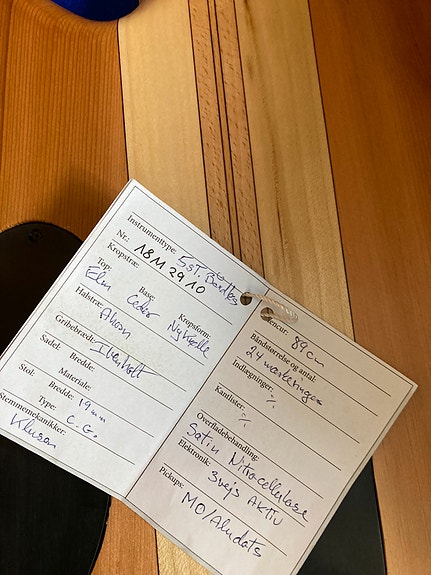 Instrumenttype: 5st. Båndløs
Nr.: 18M 29 10
Kropstræ:
Top: Base: Kropsform:
Elm Ceder
Halstræ: Ahorn
Gribebrædt: Ibenholt
Sadel: Bredde:
Materiale:
Stol: Bredde: 19 mm
Type: C.G.
Stemmemekanikker:
Kluson
Mencur: 89 cm
Båndstørrelse og antal:
24 markeringer
Indlægninger: %
Kantlister: %
Overfladebehandling:
Satin Nitrocellulose
Elektronik: 3vejs AKTIV
Pickups: MO/Alu